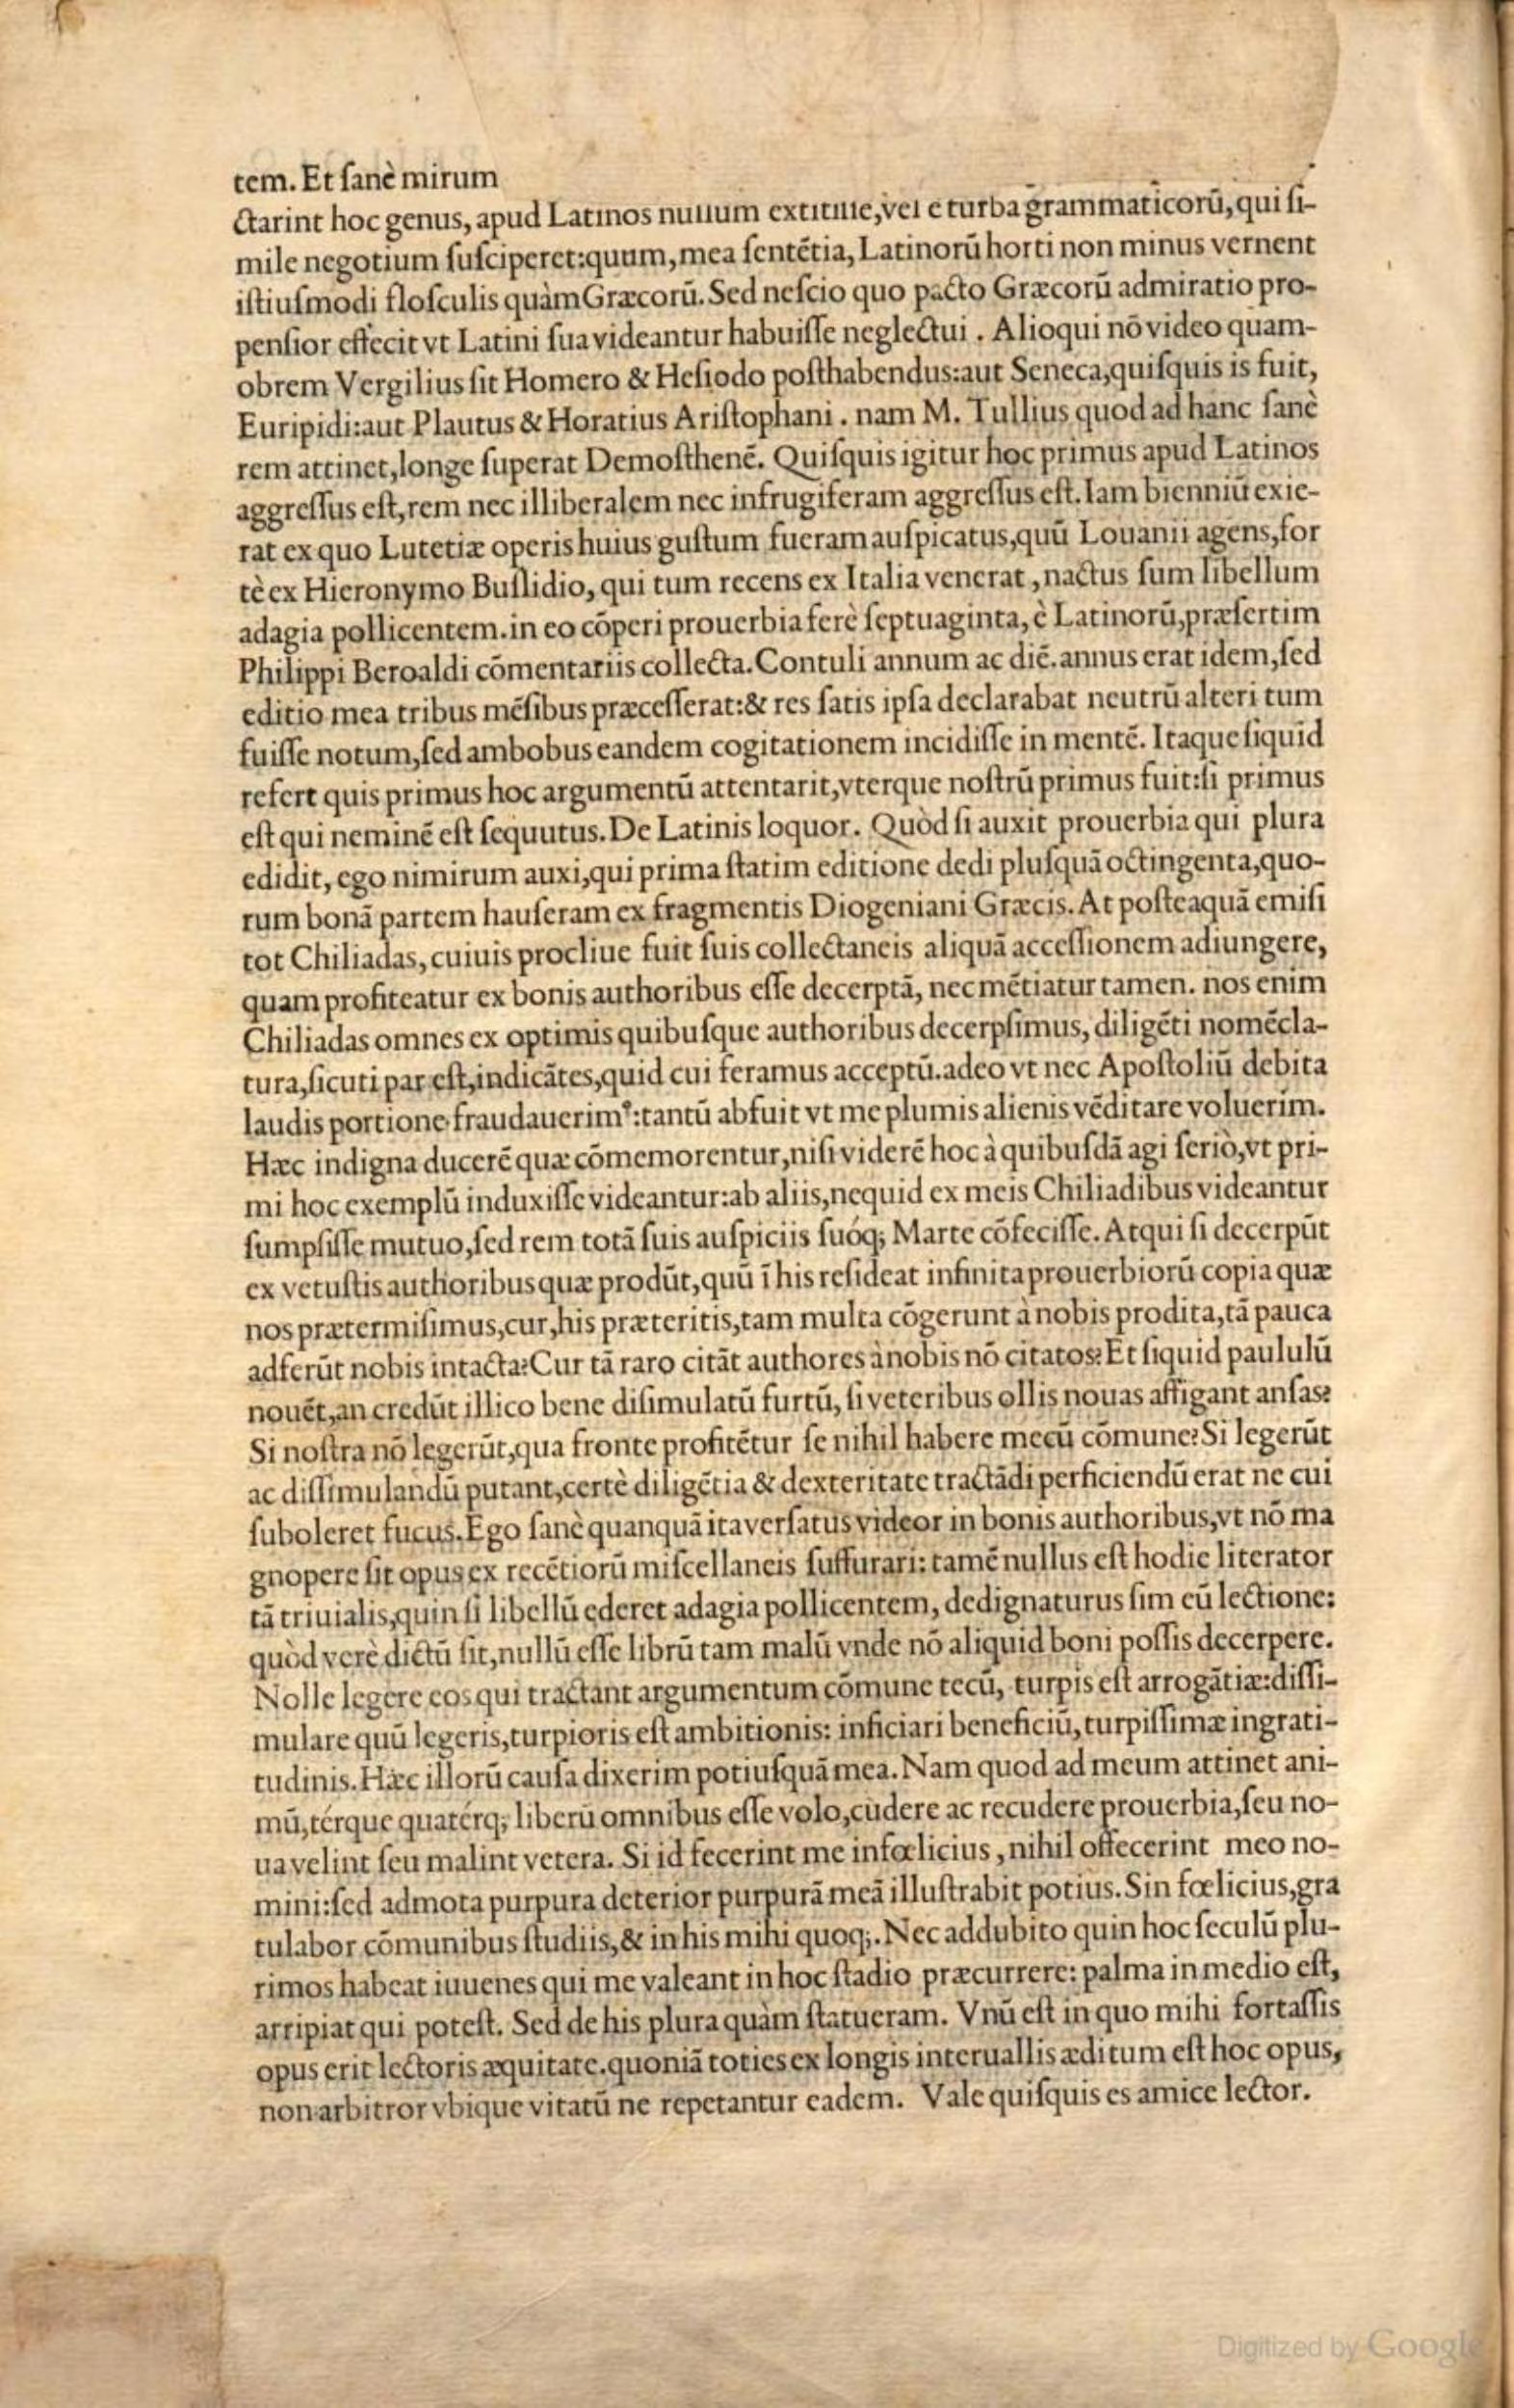 tem. Et ſanè mirum
ctarint hoc genus, apud Latinos nullum extitiſſe, vel e turba grammaticorū, qui ſi-
mile negotium ſuſciperet: quum, mea ſentētia, Latinorū horti non minus vernent
iſtiuſmodi floſculis quàm Græcorū. Sed neſcio quo pacto Græcorū admiratio pro-
penſior effecit vt Latini ſua videantur habuiſſe neglectui. Alioqui nō video quam-
obrem Vergilius ſit Homero & Heſiodo poſthabendus: aut Seneca, quiſquis is fuit,
Euripidi: aut Plautus & Horatius Ariſtophani. nam M. Tullius quod ad hanc ſanè
rem attinet, longe ſuperat Demoſthenē. Quiſquis igitur hoc primus apud Latinos
aggreſſus eſt, rem nec illiberalem nec infrugiferam aggreſſus eſt. Iam bienniū exie-
rat ex quo Lutetiæ operis huius guſtum fueram auſpicatus, quū Louanii agens, for
tè ex Hieronymo Buſlidio, qui tum recens ex Italia venerat, nactus ſum libellum
adagia pollicentem. in eo cōperi prouerbia ferè ſeptuaginta, è Latinorū, præſertim
Philippi Beroaldi cōmentariis collecta. Contuli annum ac diē. annus erat idem, ſed
editio mea tribus mēſibus præceſſerat: & res ſatis ipſa declarabat neutrū alteri tum
fuiſſe notum, ſed ambobus eandem cogitationem incidiſſe in mentē. Itaque ſiquid
refert quis primus hoc argumentū attentarit, vterque noſtrū primus fuit: ſi primus
eſt qui neminē eſt ſequutus. De Latinis loquor. Quòd ſi auxit prouerbia qui plura
edidit, ego nimirum auxi, qui prima ſtatim editione dedi pluſquā octingenta, quo-
rum bonā partem hauſeram ex fragmentis Diogeniani Græcis. At poſteaquā emiſi
tot Chiliadas, cuiuis procliue fuit ſuis collectaneis aliquā acceſſionem adiungere,
quam profiteatur ex bonis authoribus eſſe decerptā, nec mētiatur tamen. nos enim
Chiliadas omnes ex optimis quibuſque authoribus decerpſimus, diligēti nomēcla-
tura, ſicuti par eſt, indicātes, quid cui feramus acceptū. adeo vt nec Apoſtoliū debita
laudis portione fraudauerimꝰ: tantū abfuit vt me plumis alienis vēditare voluerim.
Hæc indigna ducerē quæ cōmemorentur, niſi viderē hoc à quibuſdā agi ſeriò, vt pri-
mi hoc exemplū induxiſſe videantur: ab aliis, nequid ex meis Chiliadibus videantur
ſumpſiſſe mutuo, ſed rem totā ſuis auſpiciis ſuóq; Marte cōfeciſſe. Atqui ſi decerpūt
ex vetuſtis authoribus quæ produ̅t, quū ī his reſideat infinita prouerbiorū copia quæ
nos prætermiſimus, cur, his præteritis, tam multa cōgerunt à nobis prodita, tā pauca
adferūt nobis intacta? Cur tā raro citāt authores à nobis nō citatos? Et ſiquid paululū
nouēt, an credūt illico bene diſimulatū furtū, ſi veteribus ollis nouas affigant anſas?
Si noſtra nō legerūt, qua fronte profitētur ſe nihil habere mecū cōmune? Si legerūt
ac diſſimulandū putant, certè diligētia & dexteritate tractādi perficiendū erat ne cui
ſuboleret fucus. Ego ſanè quanquā ita verſatus videor in bonis authoribus, vt nō ma
gnopere ſit opus ex recētiorū miſcellaneis ſuffurari: tamē nullus eſt hodie literator
tā triuialis, quin ſi libellū ederet adagia pollicentem, dedignaturus ſim eū lectione:
quòd verè dictū ſit, nullū eſſe librū tam malū vnde nō aliquid boni poſſis decerpere.
Nolle legere eos qui tractant argumentum cōmune tecū, turpis eſt arrogātiæ: diſſi-
mulare quū legeris, turpioris eſt ambitionis: inficiari beneficiū, turpiſſimæ ingrati-
tudinis. Hæc illorū cauſa dixerim potiuſquā mea. Nam quod ad meum attinet ani-
mū, térque quatérq; liberū omnibus eſſe volo, cudere ac recudere prouerbia, ſeu no-
ua velint ſeu malint vetera. Si id fecerint me infœlicius, nihil offecerint meo no-
mini: ſed admota purpura deterior purpurā meā illuſtrabit potius. Sin fœlicius, gra
tulabor cōmunibus ſtudiis, & in his mihi quoq;. Nec addubito quin hoc ſeculū plu-
rimos habeat iuuenes qui me valeant in hoc ſtadio præcurrere: palma in medio eſt,
arripiat qui poteſt. Sed de his plura quàm ſtatueram. Vnū eſt in quo mihi fortaſſis
opus erit lectoris æquitate. quoniā toties ex longis interuallis æditum eſt hoc opus,
non arbitror vbique vitatū ne repetantur eadem. Vale quiſquis es amice lector.
Digitized by Google